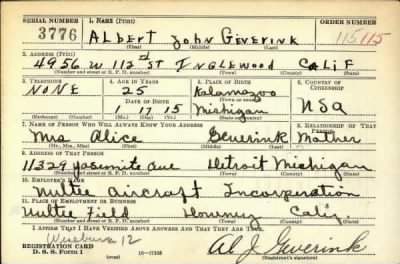 SERIAL NUMBER 1. NAME (Print) ORDER NUMBER
3776 Albert John Geverink 115115
(First) (Middle) (Last)
2. ADDRESS (Print)
4956 W 112 St Inglewood Calif
(Number and street or R. F. D. number) (Town) (County) (State)
3. TELEPHONE 4. AGE IN YEARS 5. PLACE OF BIRTH 6. COUNTRY OF CITIZENSHIP
NONE 25 Kalamazoo
DATE OF BIRTH
1 17 15 Michigan USA
(Mo.) (Day) (Yr.)
7. NAME OF PERSON WHO WILL ALWAYS KNOW YOUR ADDRESS 8. RELATIONSHIP OF THAT PERSON
Mrs Alice Geverink Mother
(Mr., Mrs., Miss) (First) (Middle) (Last)
9. ADDRESS OF THAT PERSON
11329 Yosemite Ave Detroit Michigan
(Number and street or R. F. D. number) (Town) (County) (State)
10. EMPLOYER'S NAME
Vultee Aircraft Incorporation
11. PLACE OF EMPLOYMENT OR BUSINESS
Vultee Field Downey Calif.
(Number and street or R. F. D. number) (Town) (County) (State)
I AFFIRM THAT I HAVE VERIFIED ABOVE ANSWERS AND THAT THEY ARE TRUE.
REGISTRATION CARD
D. S. S. FORM 1 16-17105 Al J Geverink
(Registrant's signature)